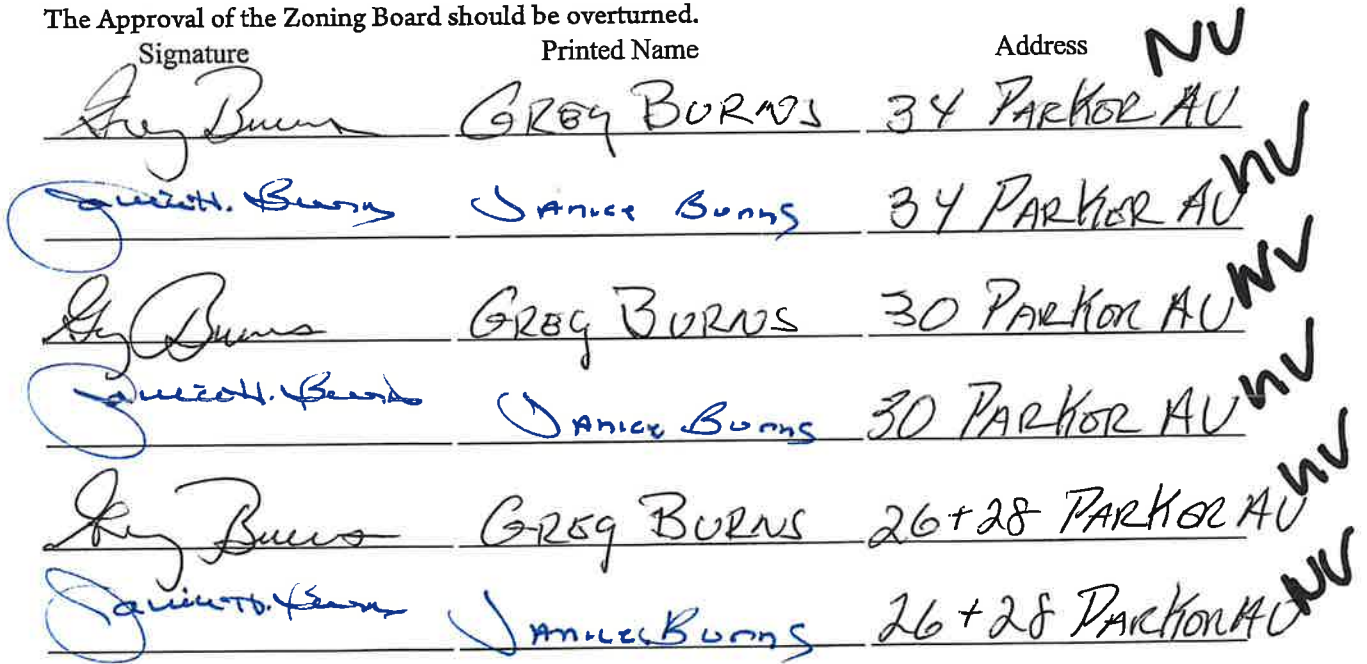 The Approval of the Zoning Board should be overturned.
Signature Printed Name Address
Greg Burns GREG BURNS 34 PARKER AV NV
Janice H. Burns JANICE BURNS 34 PARKER AV NV
Greg Burns GREG BURNS 30 PARKER AV NV
Janice H. Burns JANICE BURNS 30 PARKER AV NV
Greg Burns GREG BURNS 26+28 PARKER AV NV
Janice H. Burns JANICE BURNS 26+28 PARKER AV NV